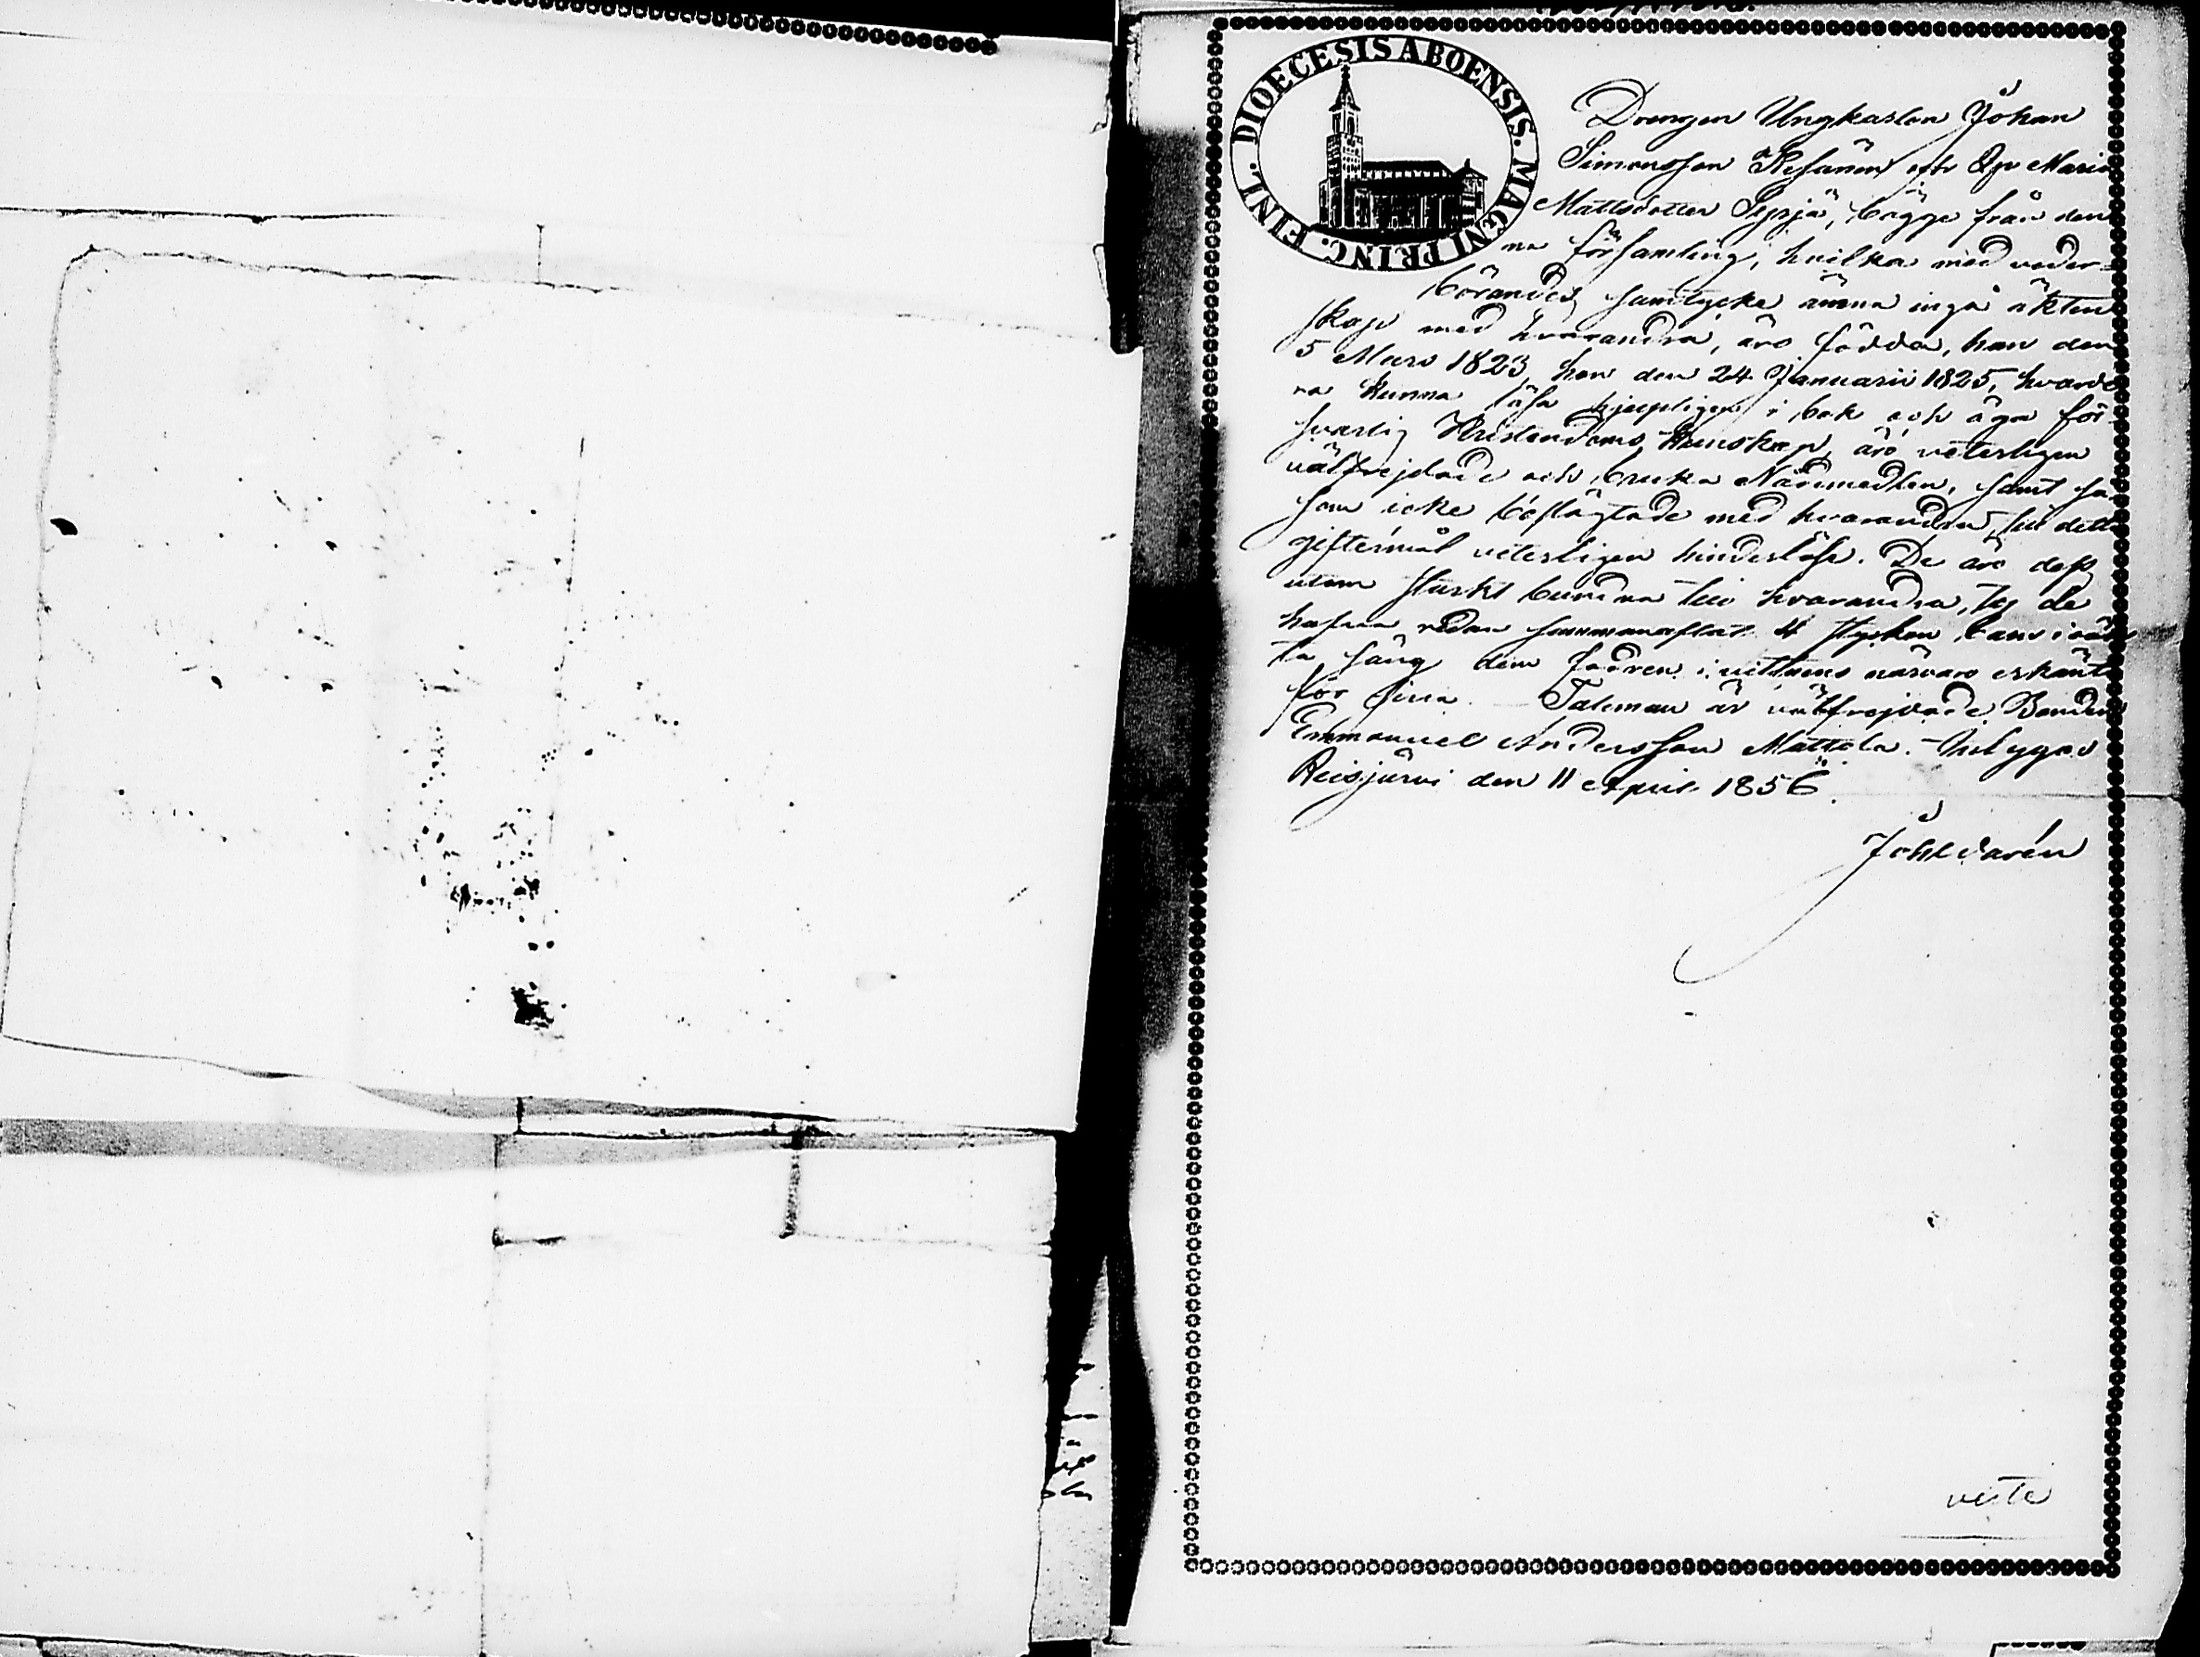 DIOECESIS ABOENSIS. MAGNI PRINC. FINL.
Drengen Ungkarlen Johan
Simonsson Kesänen och Qp Maria
Mattsdotter Syrjä, bägge från den
na församling, hvilka med veder-
börandes samtycke ämna ingå äkten
skap med hvarandra, äro födda, han den
5 Mars 1823 hon den 24 Januarii 1825, hvarde
ra kunna läsa hjelpligen i bok och äga för
svarlig Kristendoms kunskap, äro veterligen
välfrejdade och bruka Nådmedlen, samt så
som icke beslägtade med hvarandra, till detta
giftermål veterligen hinderlöse. De äro dess
utom starkt bundna till hvarandra, ty de
hafva redan sammanaflat 4 stycken barn i
ta säng dem fadren i vittnens närvaro erkänt
för sina. Taleman är välfrejdade Bonden
Emmanuel Andersson Mattala. - betygar
Reisjärvi den 11 April 1856.
Joh Ldarén